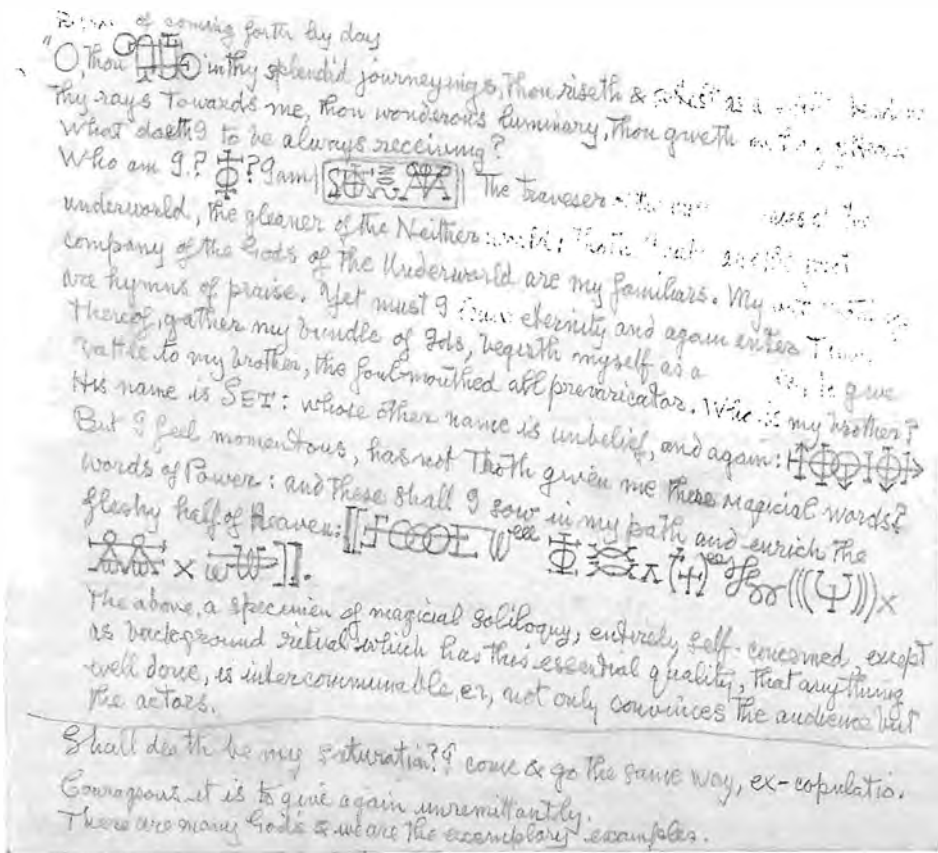 of coming forth by day
"O, Thou in thy splendid journeynigs, Thou riseth & as a
Thy rays towards me, thou wonderous luminary, Thou giveth
What doeth I to be always receiving?
Who am I.? ? I am The traveser
underworld, the gleaner of the Neither
company of the Gods of The Underworld are my familiars. My
are hymns of praise. Yet must I eternity and again enter
thereof, gather my bundle of Ids, begirth myself as a to give
battle to my brother, the foul-mouthed all prevaricator. Who is my brother?
His name is SET: whose other name is unbelief, and again:
But I feel momentous, has not Thoth given me these magicial words?
words of Power: and these shall I sow in my path and enrich the
fleshy half of Heaven:
The above, a specimien of magicial soliloquy, entirely self-concerned, except
as background ritual which has this essential quality, that anything
well done, is intercommunable, er, not only convinces the audience but
the actors.
Shall death be my saturation? I come & go the same way, ex-copulatio.
Courageous it is to give again unremittantly.
There are many Gods & we are the exemplary examples.